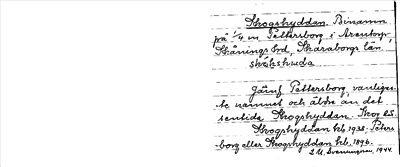 Skogshyddan. Binamn
på 1/4 m Pettersborg i Arentorp,
Skånings hd, Skaraborgs län
Jämf Pettersborg, vanligas-
te namnet och äldre än det
sentida Skogshyddan.
Skogshyddan kb. 1938; Peters-
borg eller Skogshyddan kb. 1896.
1944.